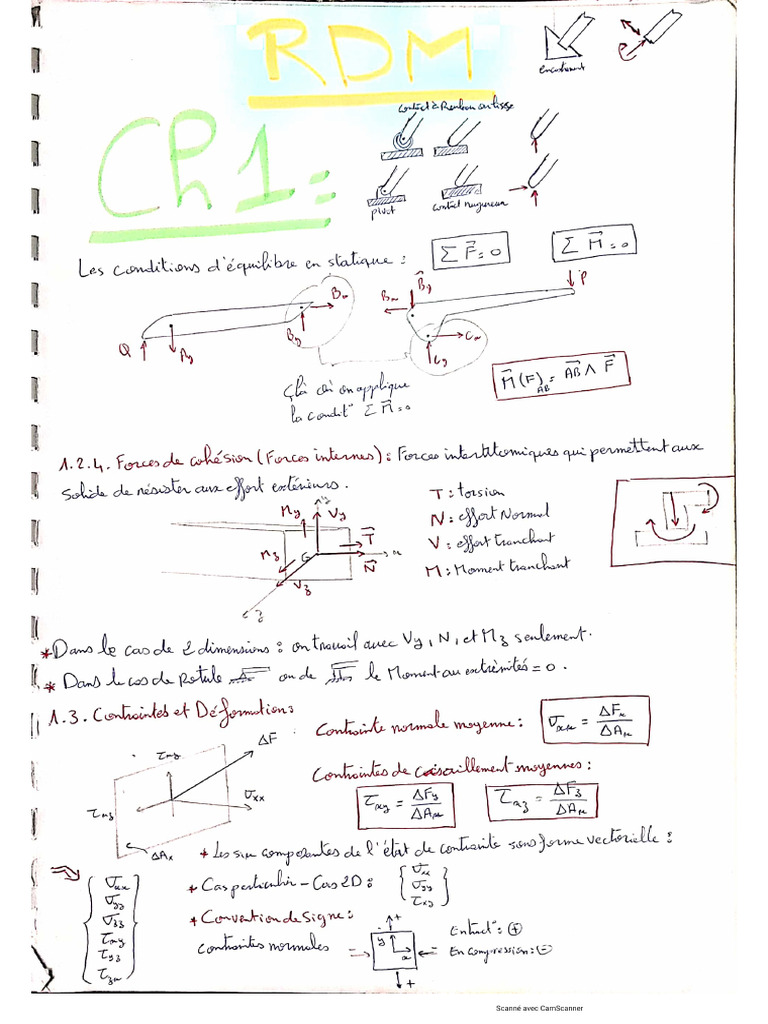 RDM
Ch1:
encastrement
contact à Rouleau ou lisse
pivot
contact rugueux
Les conditions d'équilibre en statique : Σ F⃗ = 0 Σ M⃗ = 0
Q Ay By Bx
Bx By P Cx Cy
Çlà où on applique
la condit° Σ M⃗ = 0
M⃗(F)AB = AB⃗ ∧ F⃗
1.2.4. Forces de cohésion (Forces internes) : Forces interatomiques qui permettent aux
Solide de résister aux effort extérieurs.
My Vy T⃗ N⃗ x Mz G Vz z
T : torsion
N : effort Normal
V : effort tranchant
M : Moment tranchant
* Dans le cas de 2 dimensions : on travail avec Vy, N, et Mz seulement.
* Dans le cas de Rotule ou de le Moment au extrèmités = 0.
1.3. Contraintes et Déformations
Contrainte normale moyenne : σxx = ΔFx/ΔAx
Contraintes de cisaillement moyennes :
τxy = ΔFy/ΔAx τxz = ΔFz/ΔAx
τxy ΔF σxx τxz ΔAx
* Les six composantes de l'état de contrainte sous forme vectorielle :
{σxx σyy σzz τxy τyz τzx}
* Cas particulier - Cas 2D : {σxx σyy τxy}
* Convention de Signe :
contraintes normales
+ y x +
En compression : ⊖
Scanné avec CamScanner